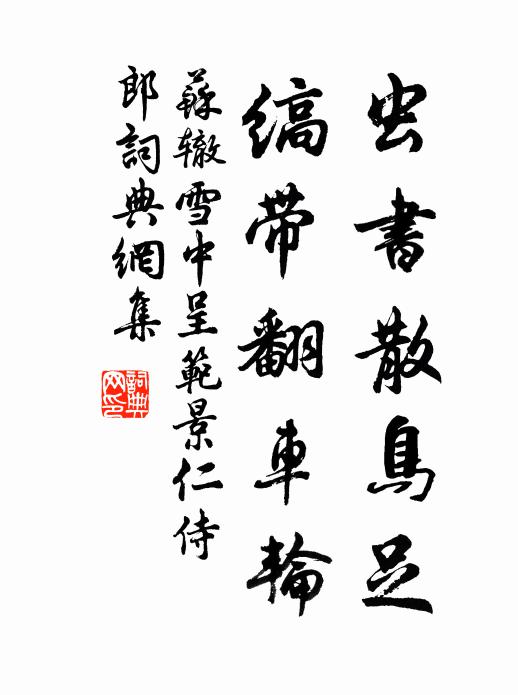 虫書散鳥足
縞帶翻車輪
蘇辙雪中呈範景仁侍
郎詞典網集
詞典
网印